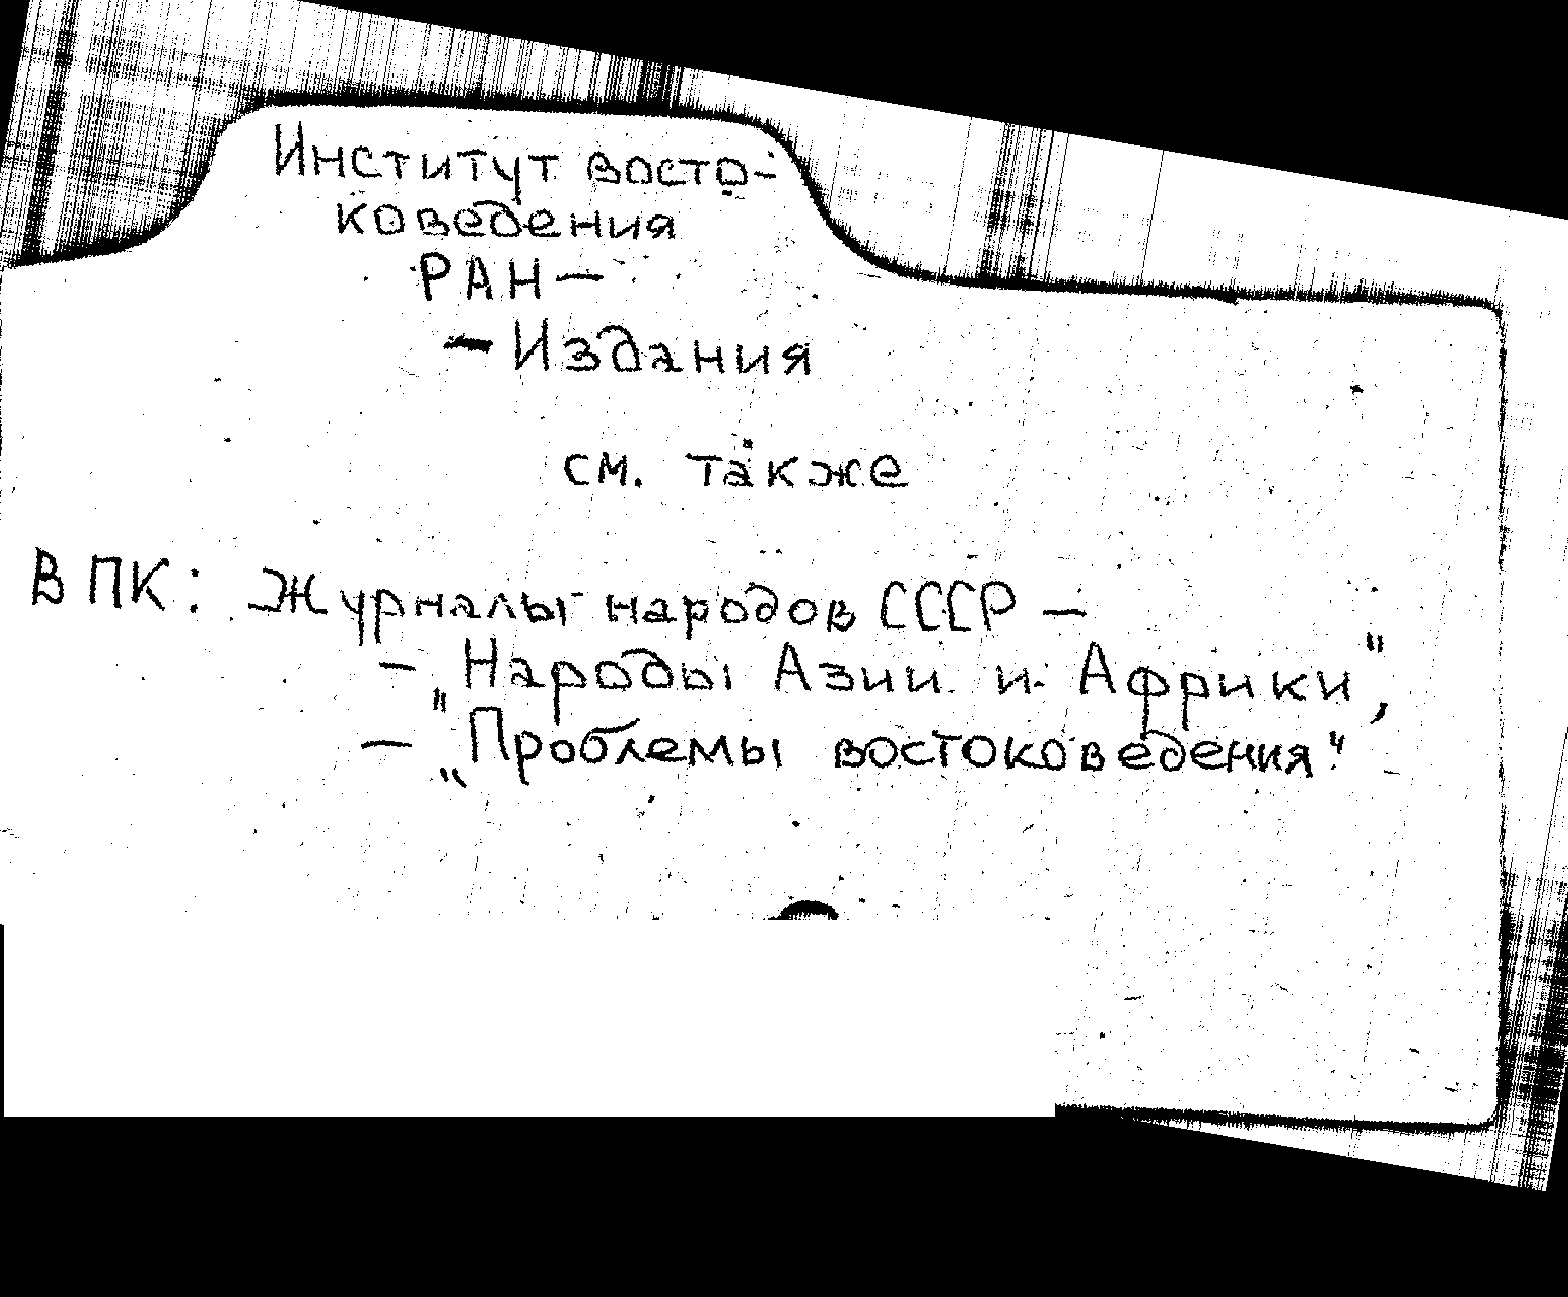 Институт восто-
коведения
РАН —
— Издания
см. также
В ПК: Журналы народов СССР —
— „Народы Азии и Африки",
— „Проблемы востоковедения"